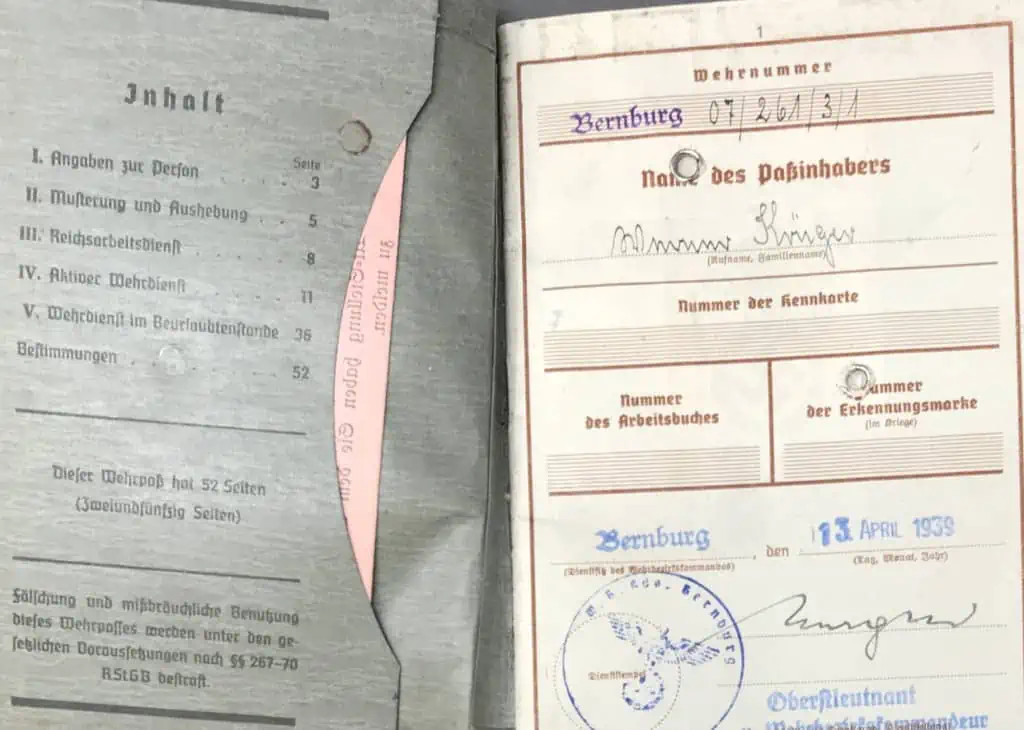 Inhalt
Seite
I. Angaben zur Person . . . . 3
II. Musterung und Aushebung . . 5
III. Reichsarbeitsdienst . . . . . 8
IV. Aktiver Wehrdienst . . . . . 11
V. Wehrdienst im Beurlaubtenstande 36
Bestimmungen . . . . . 52
Dieser Wehrpaß hat 52 Seiten
(Zweiundfünfzig Seiten)
Fälschung und mißbräuchliche Benutzung
dieses Wehrpasses werden unter den ge-
setzlichen Voraussetzungen nach §§ 267-70
RStGB bestraft.
zu melden.
haben Sie dem
1
Wehrnummer
Bernburg 07/261/3/1
Name des Paßinhabers
Krüger
(Rufname, Familienname)
Nummer der Kennkarte
Nummer
des Arbeitsbuches
Nummer
der Erkennungsmarke
(im Kriege)
Bernburg, den 13. APRIL 1939
(Dienstsitz des Wehrbezirkskommandos) (Tag, Monat, Jahr)
W. B. Kdo. Bernburg
Dienststempel
Oberstleutnant
Wehrbezirkskommandeur